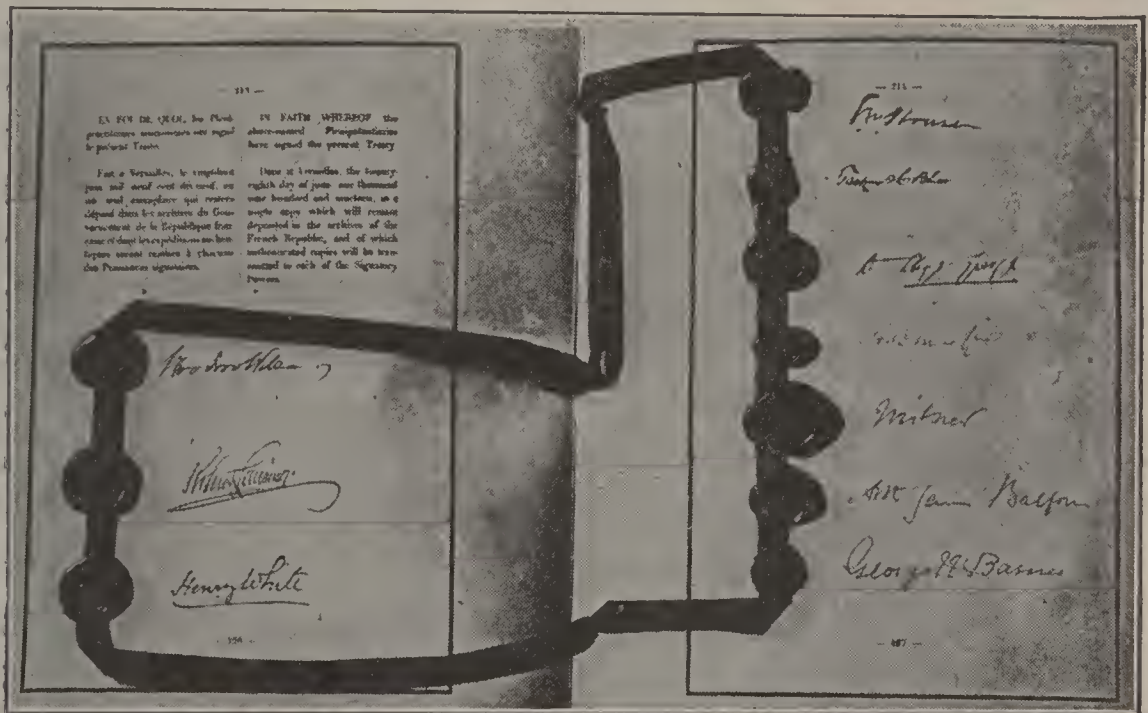 — 213 —
EN FOI DE QUOI, les Pléni-
potentiaires susnommés ont signé
le présent Traité.
Fait à Versailles, le vingt-huit
juin mil neuf cent dix-neuf, en
un seul exemplaire qui restera
déposé dans les archives du Gou-
vernement de la République fran-
çaise et dont les expéditions authen-
tiques seront remises à chacune
des Puissances signataires.
IN FAITH WHEREOF the
above-named Plenipotentiaries
have signed the present Treaty.
Done at Versailles, the twenty-
eighth day of June, one thousand
nine hundred and nineteen, in a
single copy which will remain
deposited in the archives of the
French Republic, and of which
authenticated copies will be trans-
mitted to each of the Signatory
Powers.
Woodrow Wilson
Robert Lansing
Henry White
— 214 —
D Lloyd George
Milner
Arthur James Balfour
George N Barnes